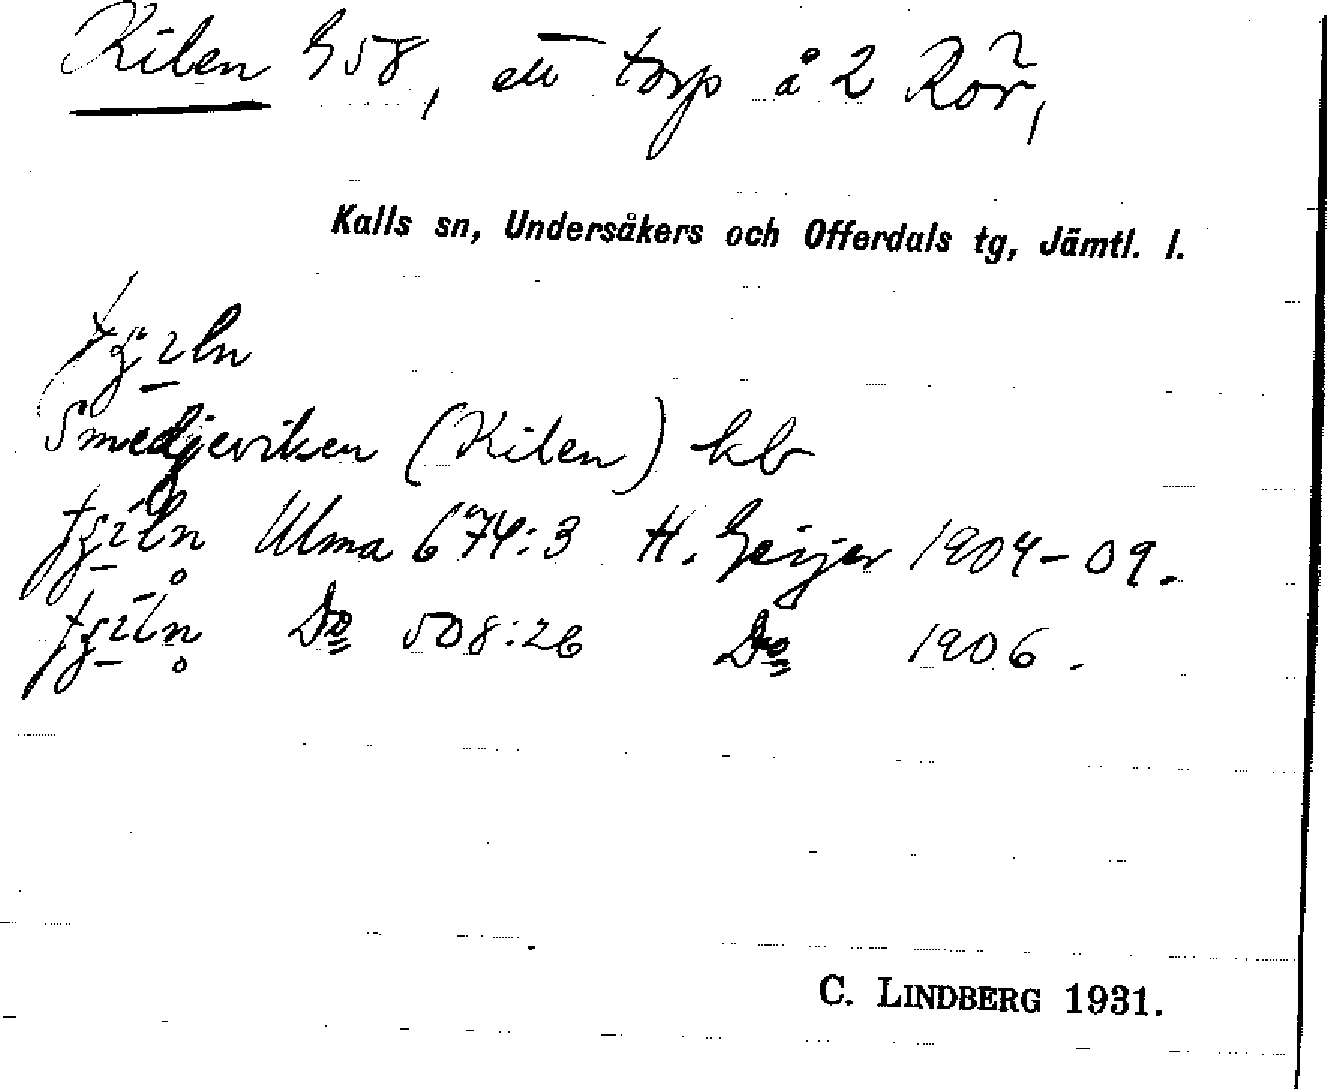 Kilen G58, ett torp å 2 Rör,
Kalls sn, Undersåkers och Offerdals tg, Jämtl. l.
Smedjeviken (Kilen) kb
Ulma 674:3 H. Geijer 1904-09.
Do 508:26 Do 1906.
C. LINDBERG 1931.